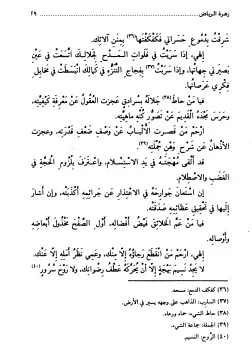 زهرة الرياض ٢٩
شرقتُ بدموعِ حسراتي فكفكفتها(٣٦) بِمنن آلائِك.
إلٰهي، إذا سَرَيْتُ في فلوات المدح لجلالِك اتّسعتْ في
بصيرتي جهاتُها، وإذا سرَبْتُ(٣٧) بفجاج التنزُّه في كمالِك انبسطَتْ في مخايل
فِكري عَرَصاتُها.
فيا مَنْ حاط(٣٨) جلالَه بسرادِقٍ عجزت العقولُ عن معرفة كيفيّتِه،
وحجَبَ مجدَه القديم عن تَصوّر كُنْهِ ماهيّته.
ارْحَمْ مَنْ قَصرت الألبابُ عن وَصْفِ ضَعْفِ قدرتِه، وعجزت
الأذهانُ عن شَرْح وهْنِ جُمْلتِه(٣٩).
قد ألْقى مُهْجَتَه في يَدِ الاستسلامِ، واعترفَ بلُزومِ الحُجّةِ في
الغَضَبِ والاصطلامِ.
إن استعانَ جوارحَه في الاعتِذار عن جرائمِه أكذبَتْه، وإن أشارَ
إليها في تحقيق عظائمِه صدّقتْه.
فيا مَنْ عَمَّ الخلائقَ فيضُ أفضالِه، أَوْلِ الصَّفْحَ مخذولَ أبعاضِه
وأوصالِه.
إلٰهي، ارْحَمْ مَنْ انقطعَ رجاؤُه إلّا منكَ، وعمِيَ نظرُ أملِه إلّا عنكَ،
لا يجدُ نسيمَ بَهْجةٍ إلّا أن يُحرّكَه عَطْفُ رضوانِك، ولا رَوْحَ سُرورٍ(٤٠)
(٣٦) كفكف الدمع: مسحه.
(٣٧) السارب: الذاهب على وجهه يسير في الأرض.
(٣٨) حاط الشيء: حماه ورعاه.
(٣٩) الجملة: جماعة الشيء.
(٤٠) الرَّوح: النسيم.